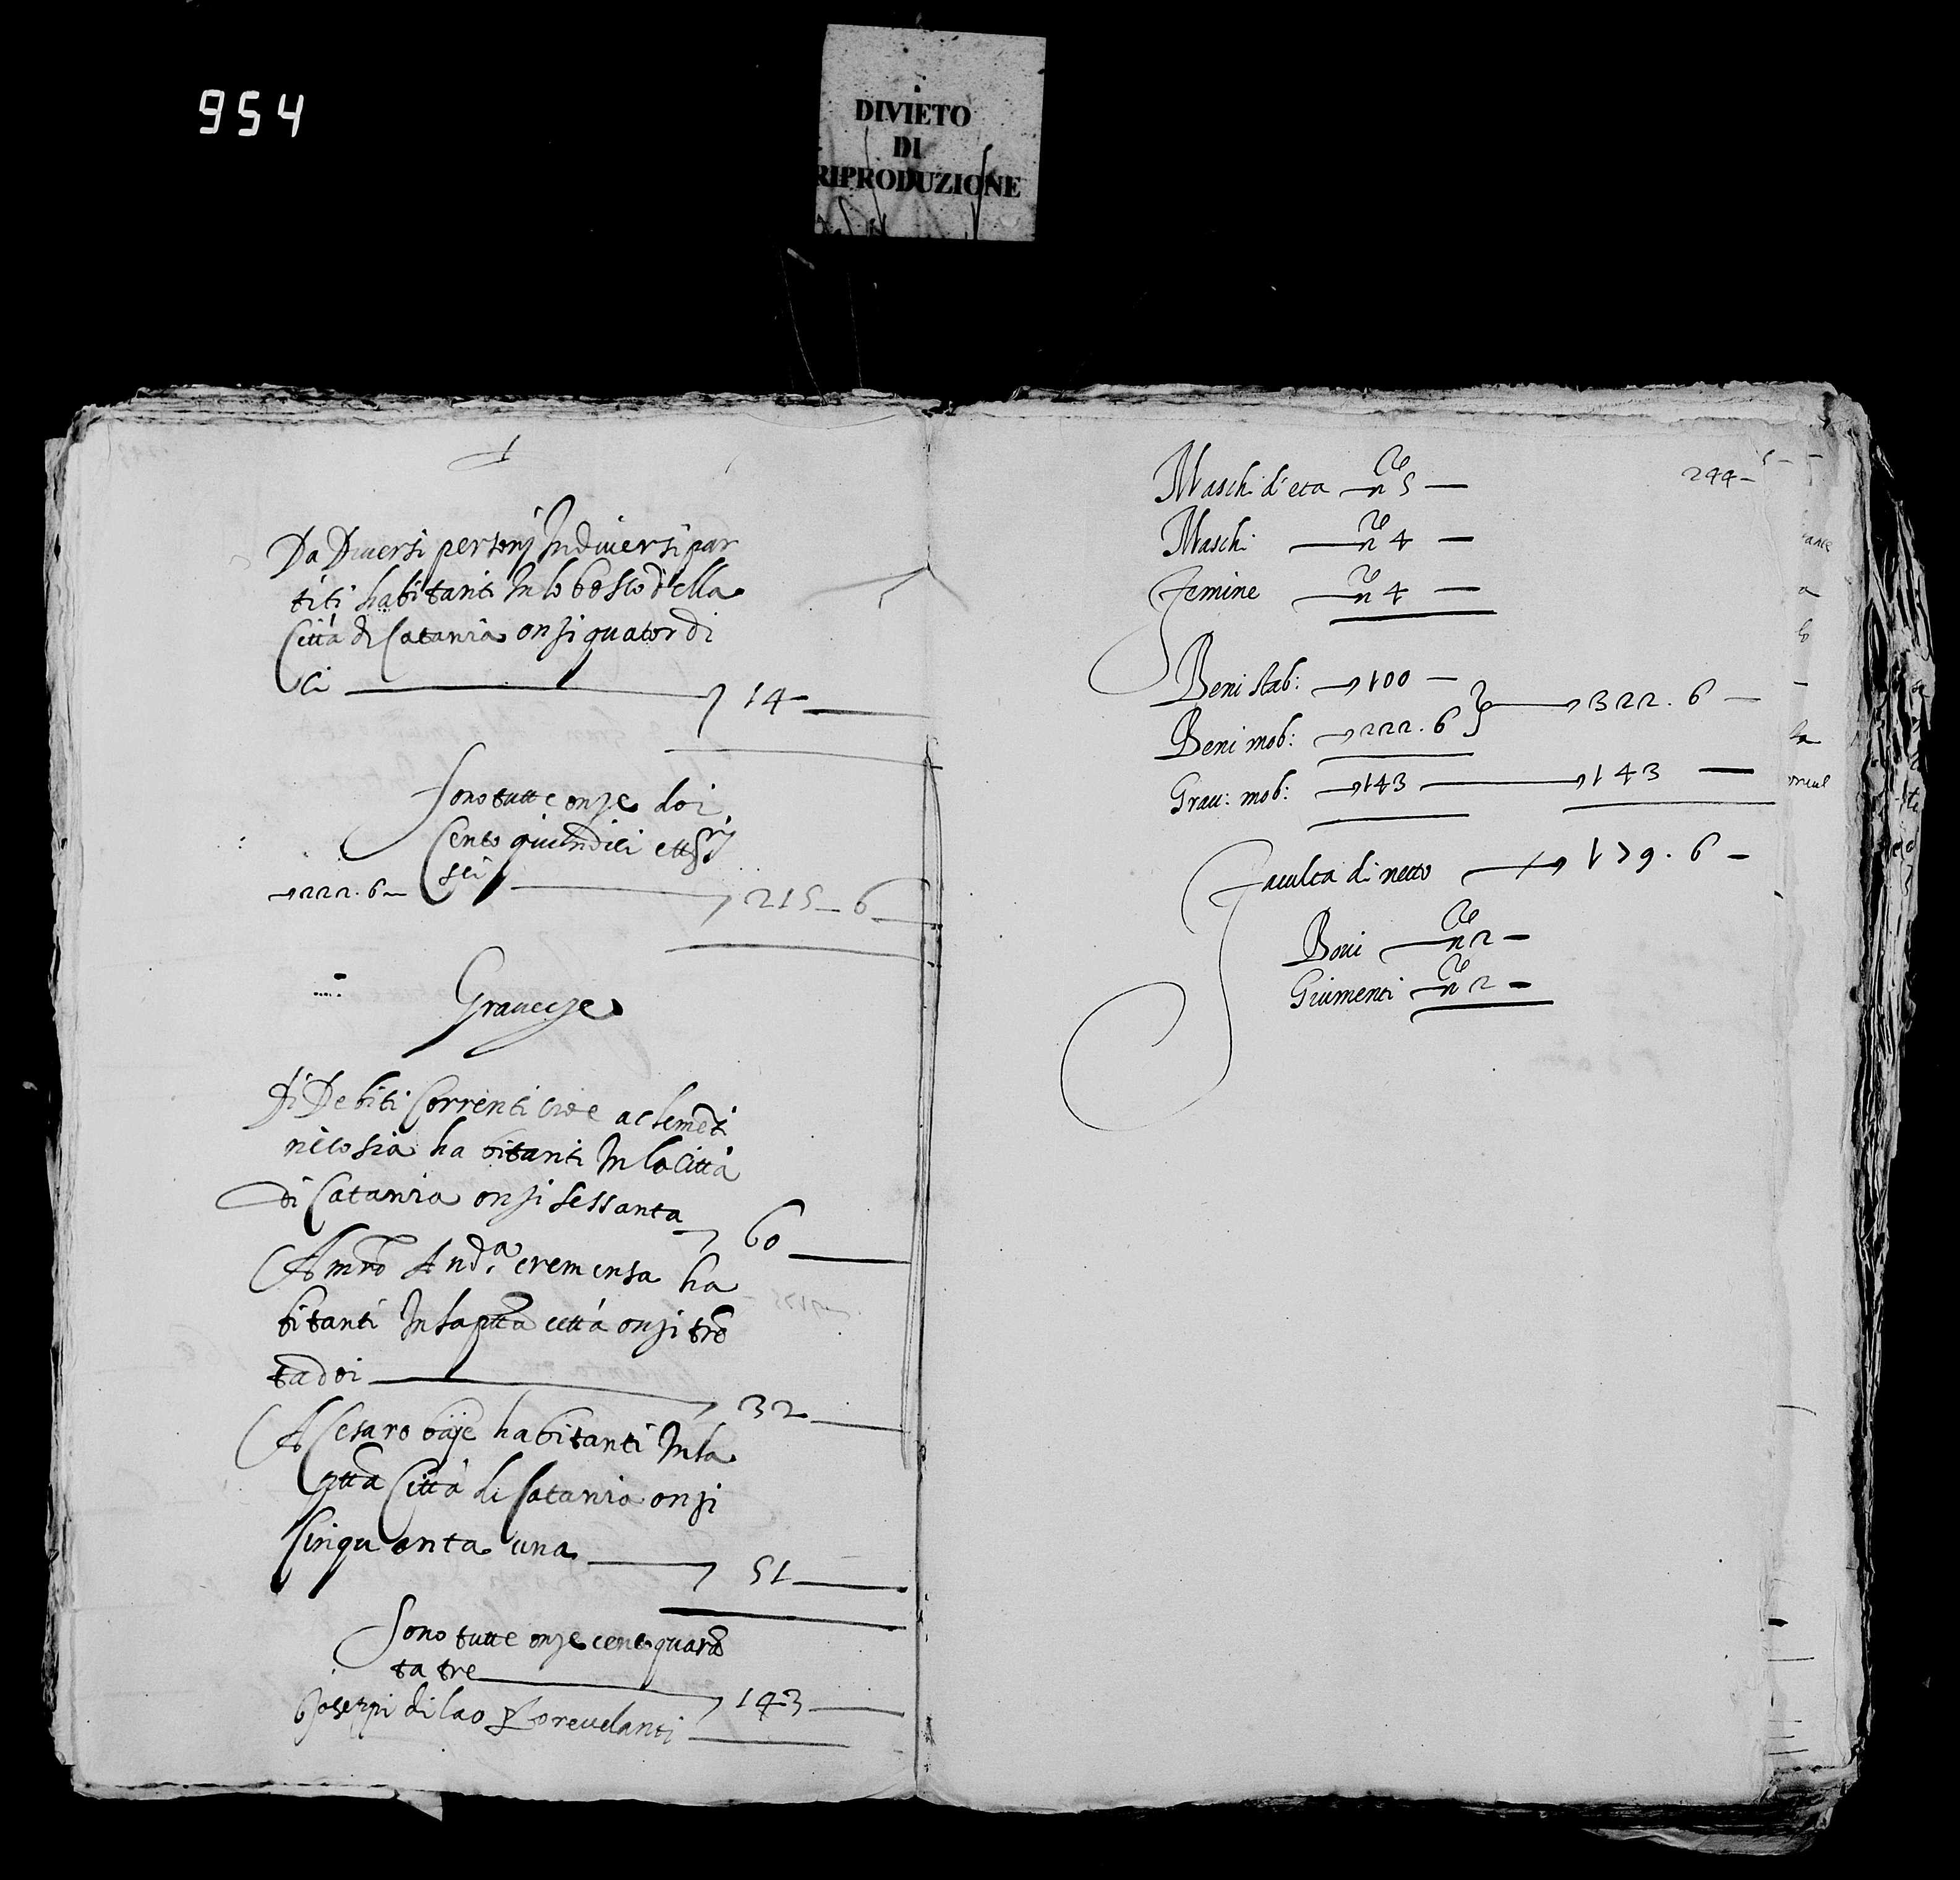 954
DIVIETO
DI
RIPRODUZIONE
Da Diversi personj In diversi par
titi habitanti In lo bosco della
Città di Catania onzi quatordi
ci 14
Sono tutte onze doi
Cento quindici ett.rj
sei 215 6
222.6
Gravezze
Di Debiti Correnti cioe a clemẽti
nicosia habitanti In la Città
di Catania onzi sessanta 60
A m.ro And.a cremensa ha
bitanti In la p.tta città onzi trẽ
ta doi 32
A Cesaro habitanti In la
p.tta Città di Catania onzi
Cinquanta una 51
Sono tutte onze cento quarã
ta tre 143
Joseppi di lao revelanti
244
Maschi d'eta n.ro 5
Maschi n.ro 4
Femine n.ro 4
Beni stab: 100
Beni mob: 222.6 322.6
Grav: mob: 143 143
Faculta di netto 179.6
Bovi n.ro 2
Giumenti n.ro 2